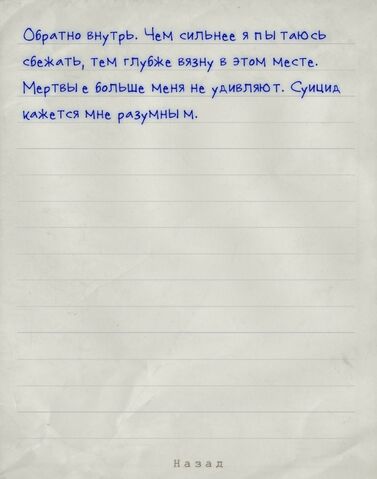 Обратно внутрь. Чем сильнее я пытаюсь
сбежать, тем глубже вязну в этом месте.
Мертвые больше меня не удивляют. Суицид
кажется мне разумным.
Назад